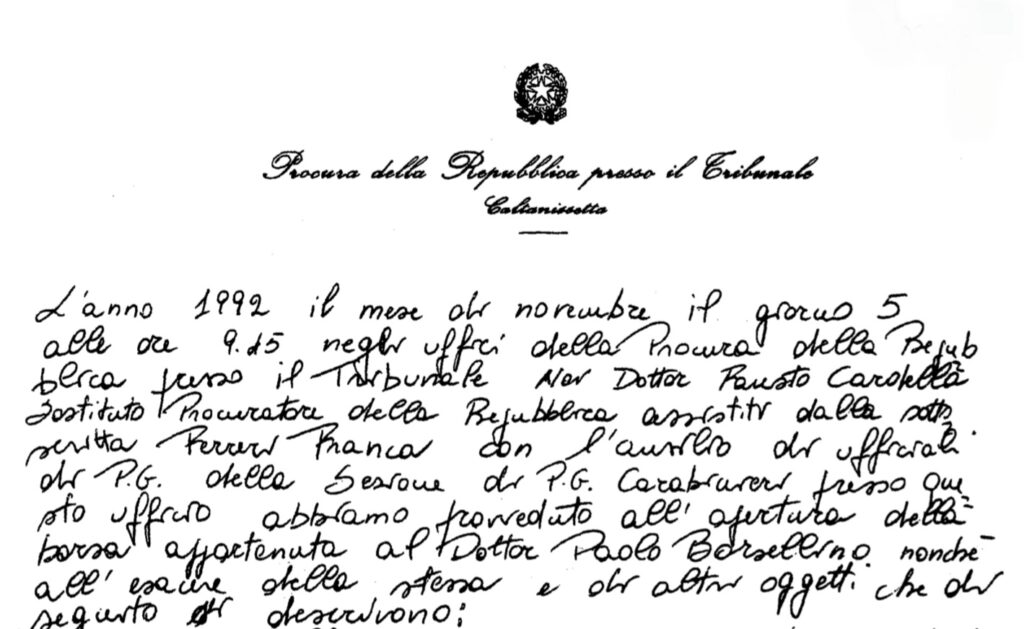 Procura della Repubblica presso il Tribunale
Caltanissetta
L'anno 1992 il mese di novembre il giorno 5
alle ore 9.15 negli uffici della Procura della Repub
blica presso il Tribunale Noi Dottor Fausto Cardella
Sostituto Procuratore della Repubblica assistiti dalla sotto
scritta Ferreri Franca con l'ausilio di ufficiali
di P.G. della Sezione di P.G. Carabinieri presso que
sto ufficio abbiamo provveduto all'apertura della
borsa appartenuta al Dottor Paolo Borsellino nonché
all'esame della stessa e di altri oggetti che di
seguito si descrivono: